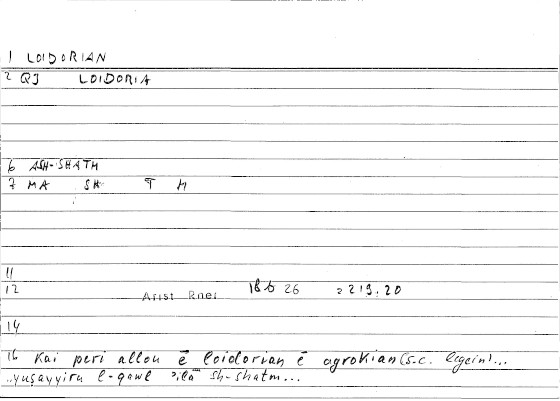 1 LOIDORIAN
2 QJ LOIDORIA
6 ASH-SHATM
7 MA SH T M
11
12 Arist Rhet 18b 26 = 219,20
14
16 Kai peri allou ē loidorian ē agroikian (s.c. legein)...
..yuṣayyiru l-qawl ʾilā sh-shatm...